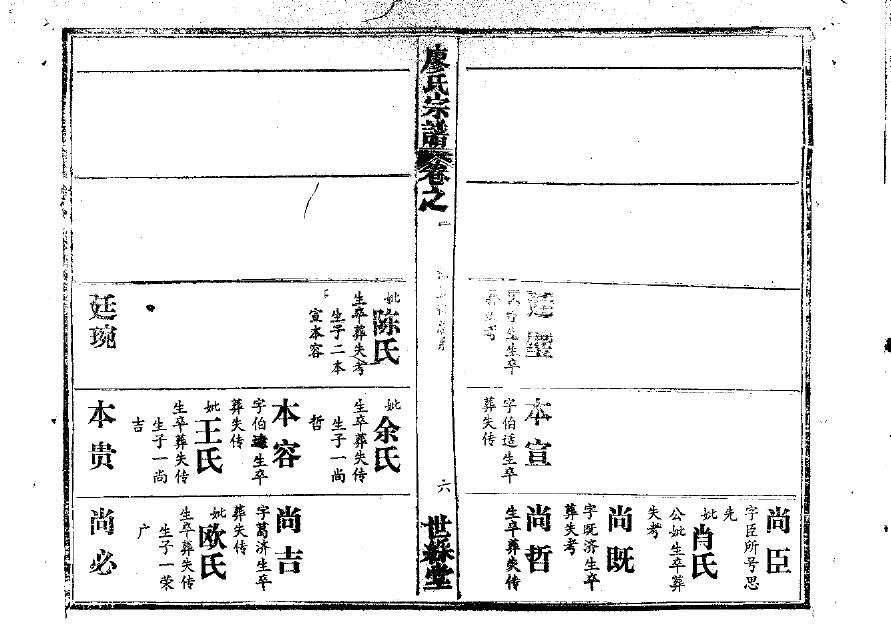 廖氏宗譜
卷之
六
世綵堂
本宣
字伯适生卒
葬失传
尚臣
字臣所号思
先
妣
肖氏
公妣生卒葬
失考
尚既
字既济生卒
葬失考
尚哲
生卒葬失传
妣
陈氏
生卒葬失考
生子二本
宣本容
廷琬
妣
余氏
生卒葬失传
生子一尚
哲
本容
字伯适生卒
葬失传
妣
王氏
生卒葬失传
生子一尚
吉
本贵
尚吉
字葛济生卒
葬失传
妣
欧氏
生卒葬失传
生子一荣
广
尚必